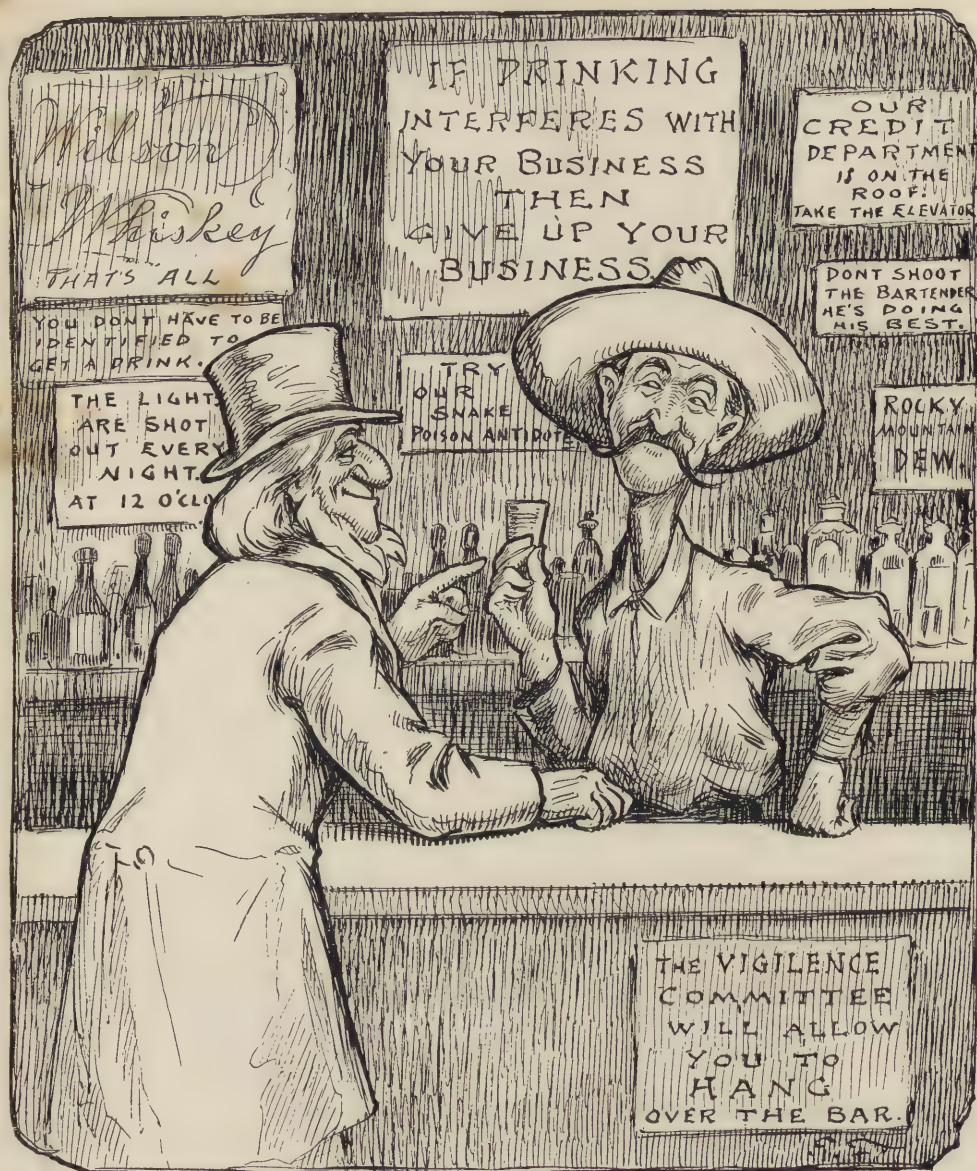 Wilson
Whiskey
THAT'S ALL
YOU DONT HAVE TO BE
IDENTIFIED TO
GET A DRINK.
THE LIGHTS
ARE SHOT
OUT EVERY
NIGHT
AT 12 O'CLO
IF DRINKING
INTERFERES WITH
YOUR BUSINESS
THEN
GIVE UP YOUR
BUSINESS
TRY
OUR
SNAKE
POISON ANTIDOTE
OUR
CREDIT
DEPARTMENT
IS ON THE
ROOF.
TAKE THE ELEVATOR
DONT SHOOT
THE BARTENDER
HE'S DOING
HIS BEST.
ROCKY
MOUNTAIN
DEW.
THE VIGILENCE
COMMITTEE
WILL ALLOW
YOU TO
HANG
OVER THE BAR.